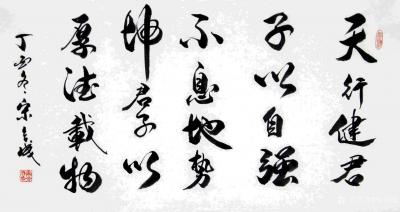 天行健君
子以自強
不息地势
坤君子以
厚德載物
丁酉冬宗